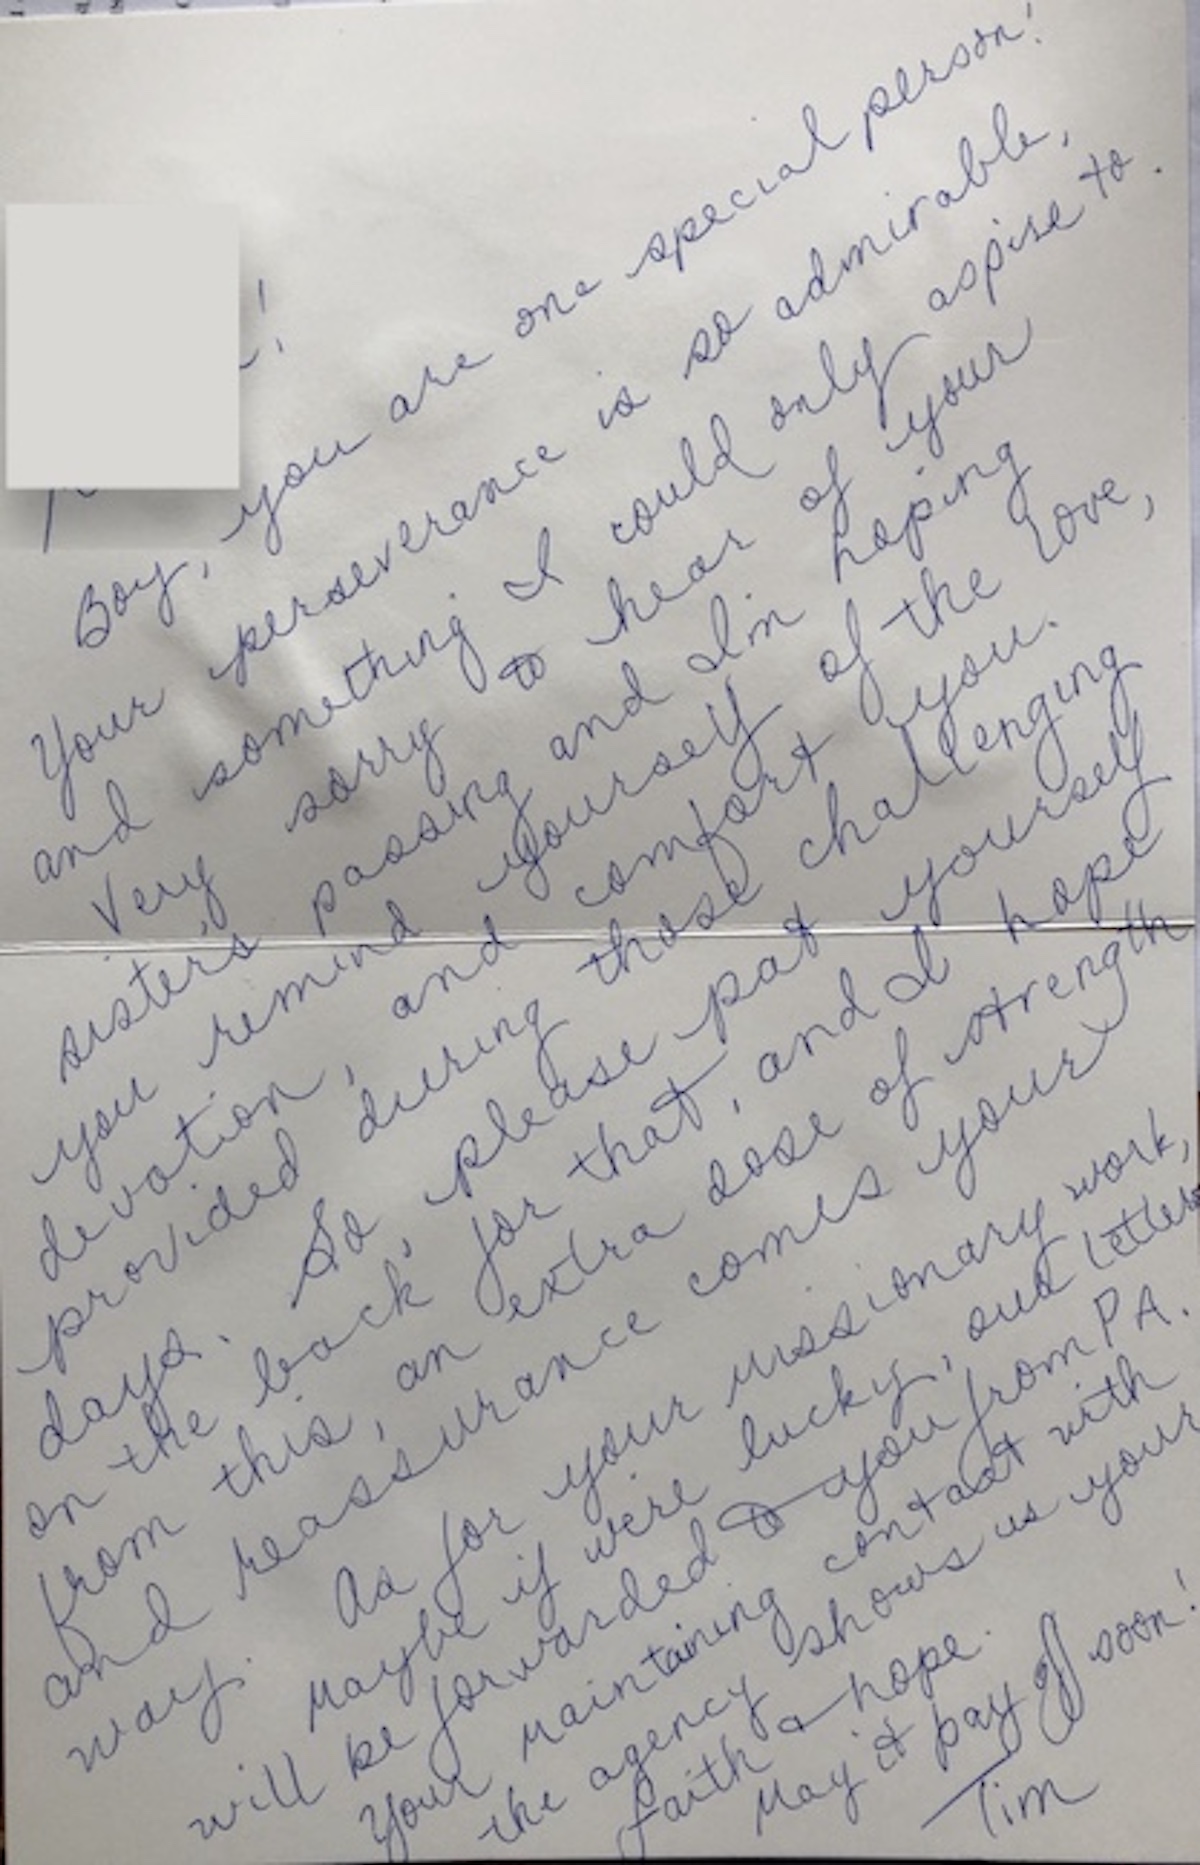 !
Boy, you are one special person!
Your perseverance is so admirable,
and something I could only aspise to.
Very sorry to hear of your
sister's passing and I'm hoping
you remind yourself of the love,
devotion, and comfort you.
provided during those challenging
days. So, please pat yourself
on the back for that, and I hope
from this, an extra dose of strength
and reassurance comes your
way.
As for your missionary work,
maybe if we're lucky, our letters
will be forwarded to you from PA.
Your maintaining contact with
the agency shows us your
faith & hope.
May it pay off soon!
Tim